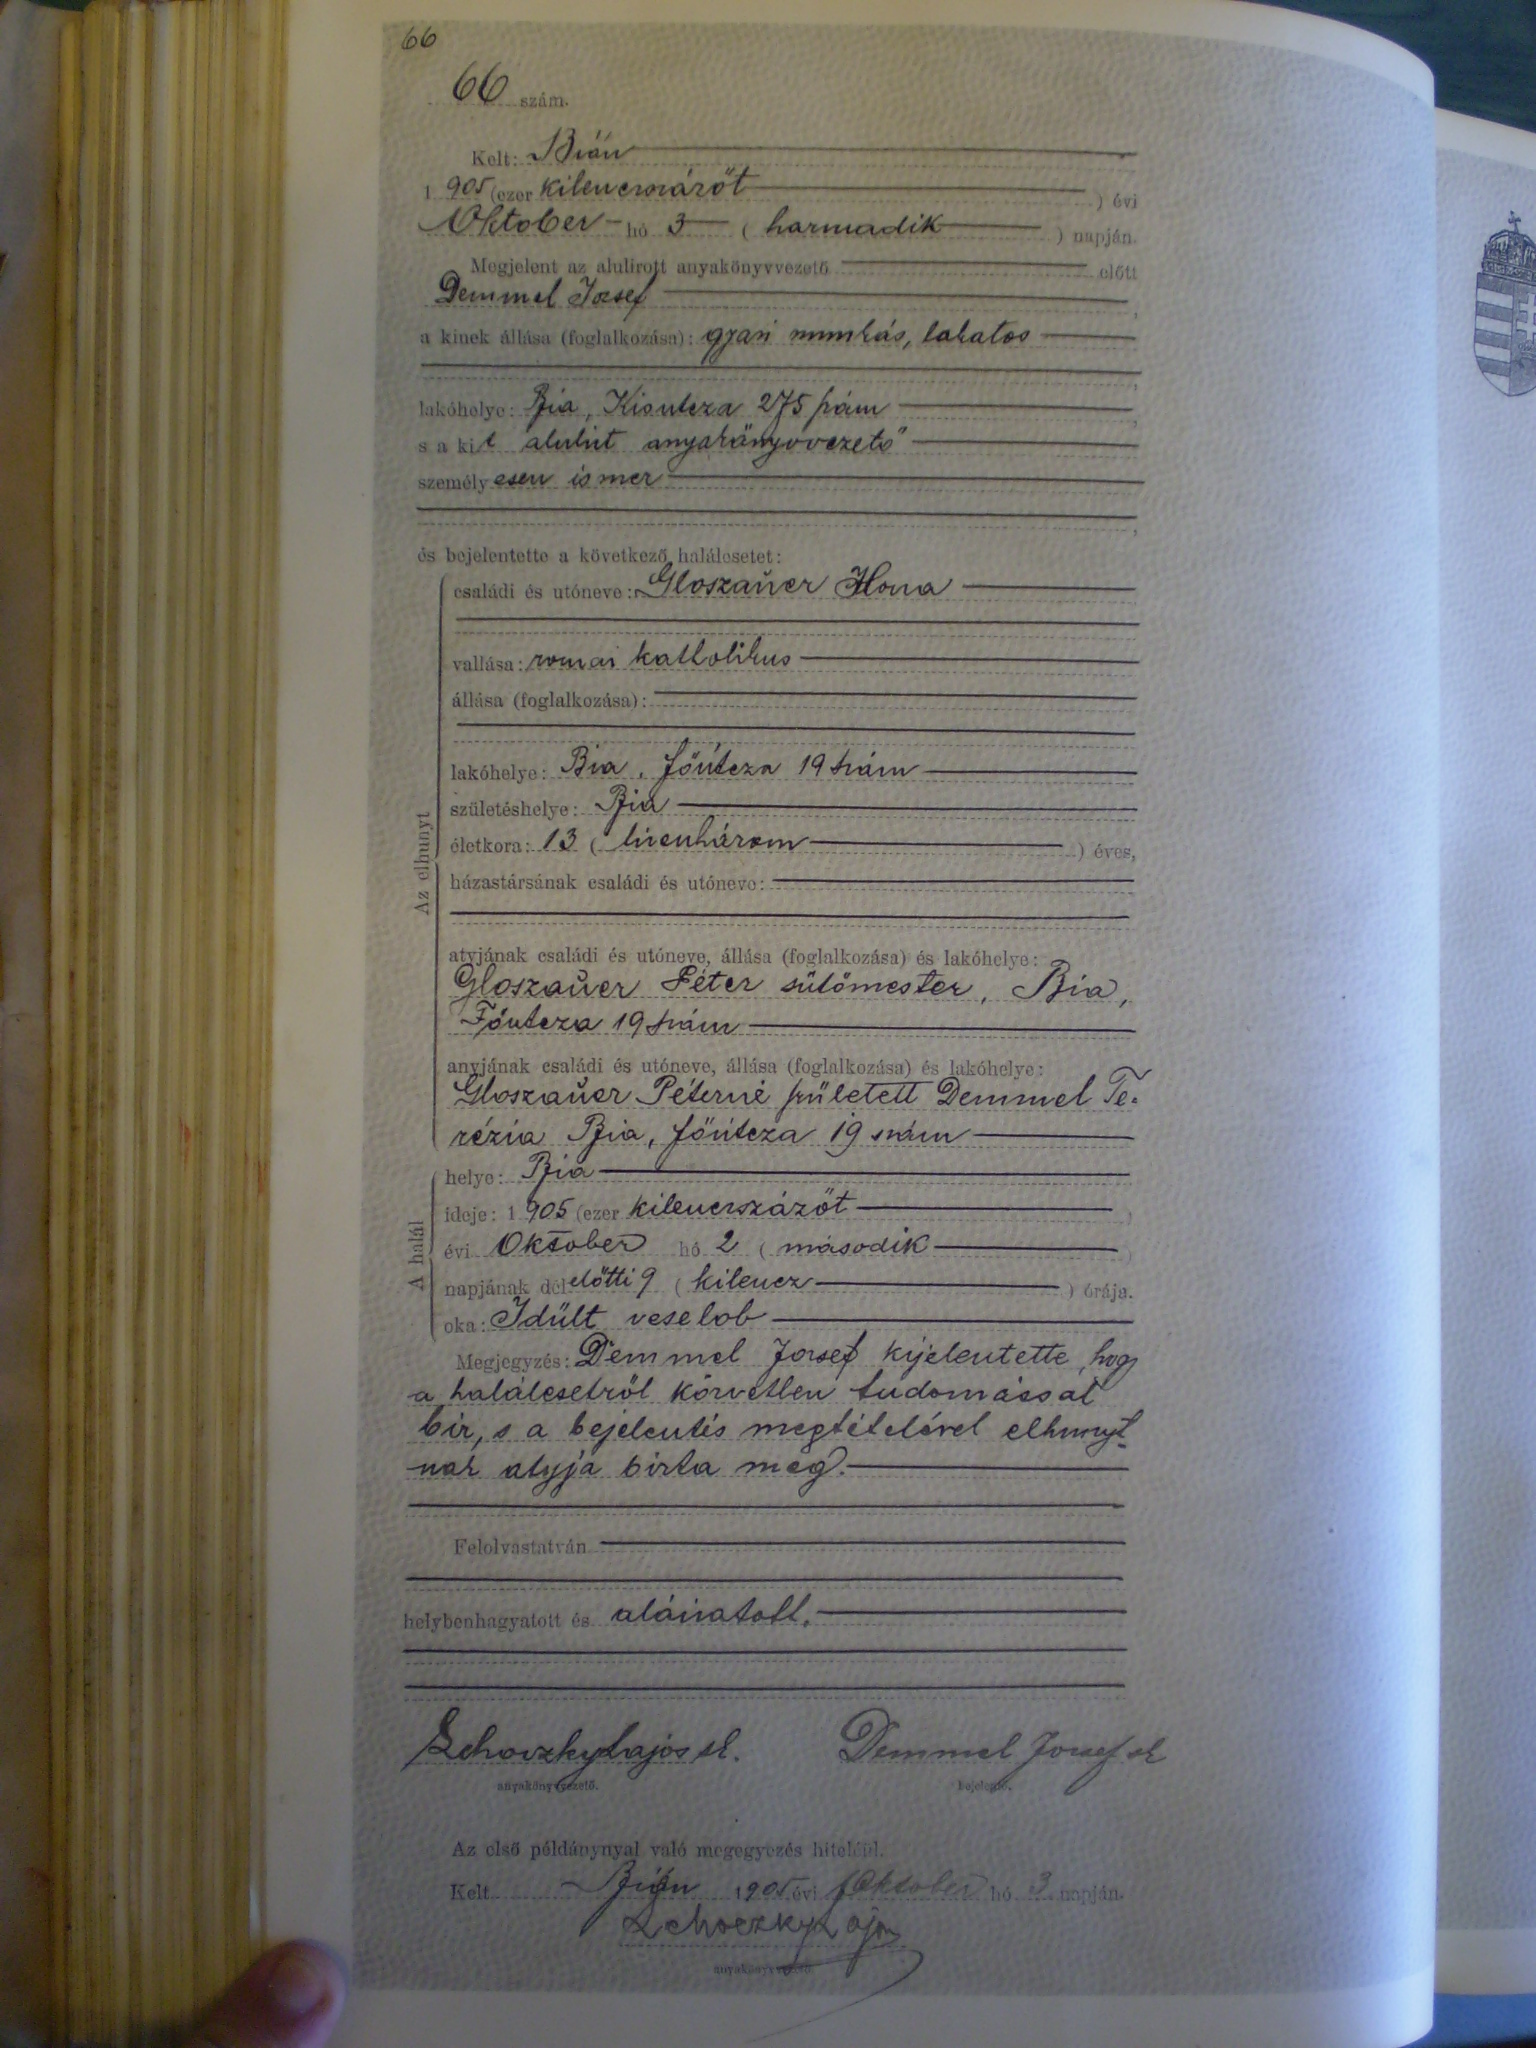 66
66 szám.
Kelt: Bián
1 905 (ezer kilenczszázöt ) évi
Október hó 3 ( harmadik ) napján.
Megjelent az alulirott anyakönyvvezető előtt
Demmel József ,
a kinek állása (foglalkozása): gyari munkás, lakatos
,
lakóhelye: Bia, Kisutcza 275 szám ,
s a kit alulirt anyakönyvvezető
személy esen ismer
,
és bejelentette a következő halálesetet:
Az elhunyt
családi és utóneve: Gloszaŭer Ilona
vallása: romai katholikus
állása (foglalkozása):
lakóhelye: Bia, főútcza 19 szám
születéshelye: Bia
életkora: 13 ( tizenhárom ) éves,
házastársának családi és utóneve:
atyjának családi és utóneve, állása (foglalkozása) és lakóhelye:
Gloszaŭer Péter sütőmester, Bia,
Főutcza 19 szám
anyjának családi és utóneve, állása (foglalkozása) és lakóhelye:
Gloszaŭer Péterné született Demmel Te-
rézia Bia, főútcza 19 szám
A halál
helye: Bia
ideje: 1 905 (ezer kilenczszázöt )
évi Október hó 2 ( második )
napjának délelőtti 9 ( kilencz ) órája.
oka: Idült veselob
Megjegyzés: Demmel József kijelentette, hogy
a halálesetről közvetlen tudomással
bir, s a bejelentés megtételével elhunyt-
nak atyja bizta meg.
Felolvastatván
helybenhagyatott és aláiratott.
Lajos sk. Demmel József sk
anyakönyvvezető. bejelentő.
Az első példánynyal való megegyezés hiteléül.
Kelt Bián 1905 évi Október hó 3 napján.
anyakönyvvezető.